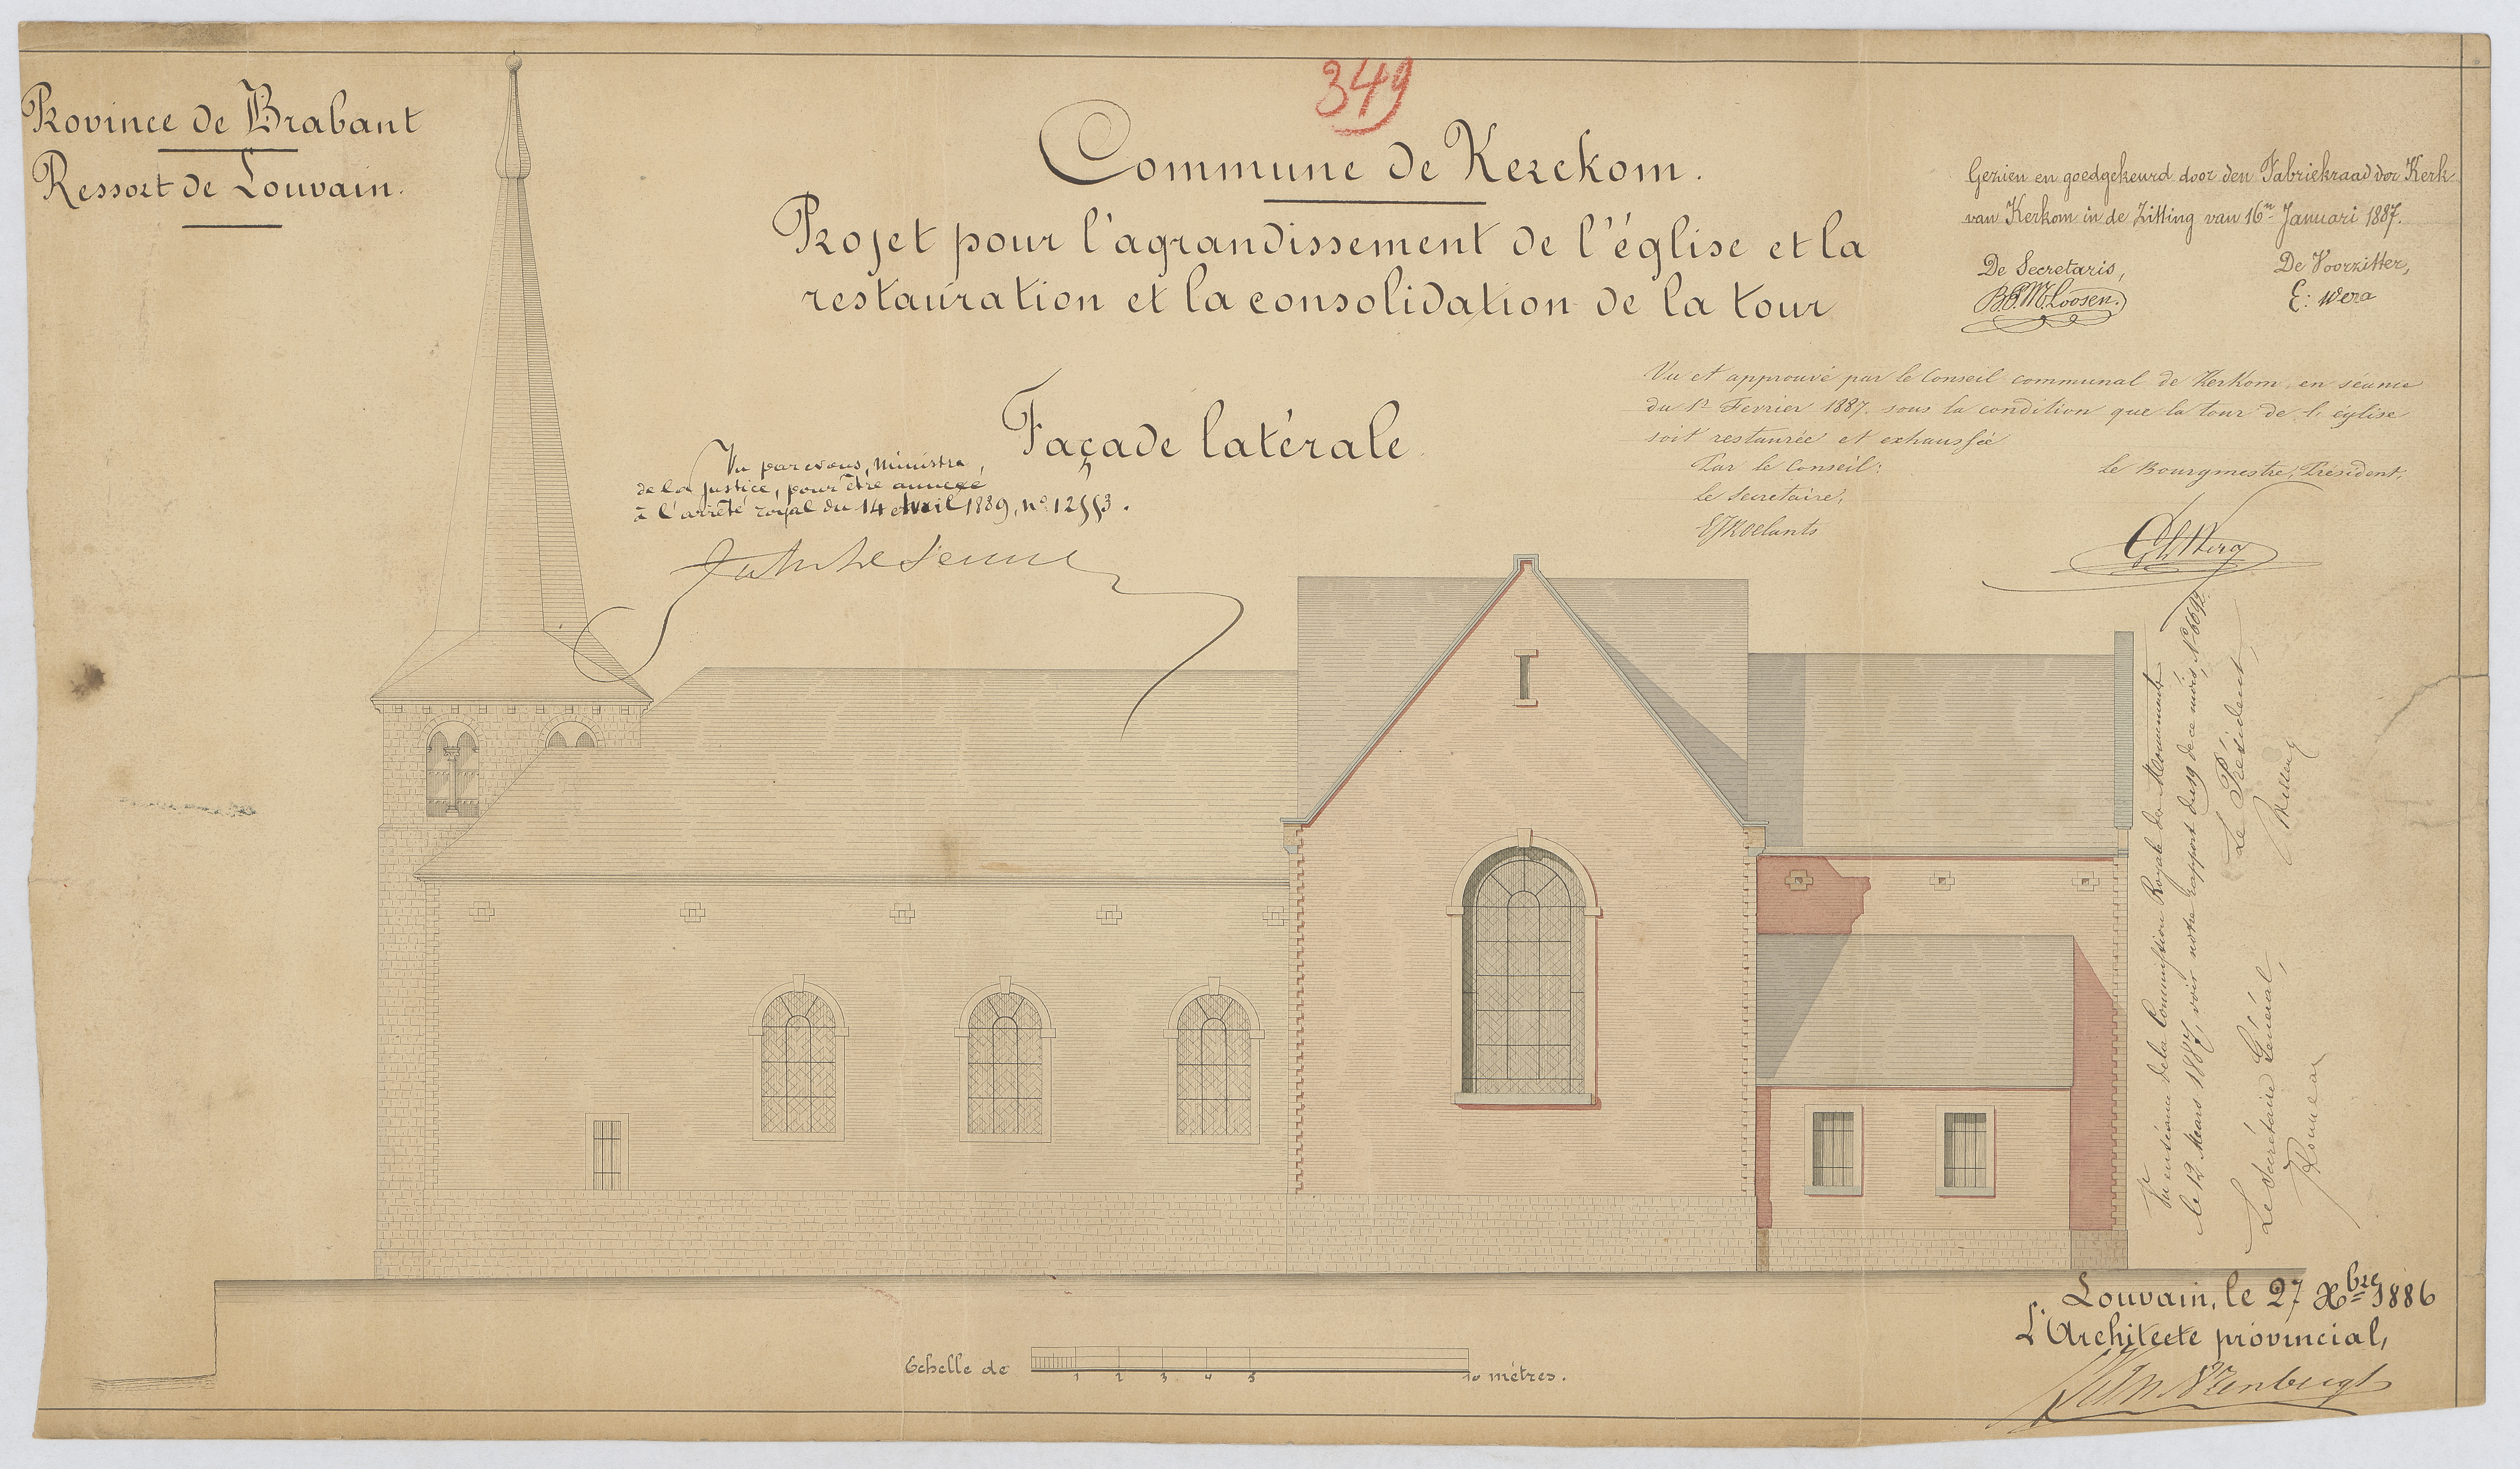 349
Province de Brabant
Ressort de Louvain.
Commune de Kerckom.
Projet pour l'agrandissement de l'église et la
restauration et la consolidation de la tour
Façade latérale
Gezien en goedgekeurd door den Fabriekraad der Kerk
van Kerkom in de Zitting van 16n Januari 1887.
De Secretaris,
De Voorzitter,
Loosen.
E: Wera
Vu et approuvé par le Conseil communal de Kerkom, en séance
du 1r Fevrier 1887. sous la condition que la tour de l'église
soit restaurée et exhaussée
Par le Conseil:
Le Bourgmestre, Président,
Le Secrétaire,
Roelants
Vu par nous, Ministre
de la Justice, pour être annexé
à l'arrêté royal du 14 avril 1889, no 12553.
Jules Le Jeune
Vu en séance de la Commission Royale des Monuments
le 12 Mars 1887, voir notre rapport du 19 de ce mois, No 6692.
Le Secrétaire Général,
Le Président,
Rousseau
Wellens
Louvain, le 27 Xbre 1886
L'Architecte provincial,
Echelle de
1 2 3 4 5 10 mètres.